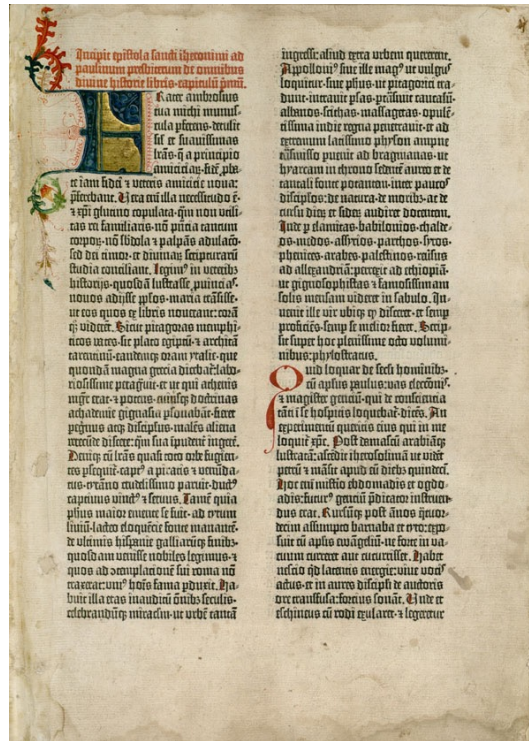 Incipit epistola sancti iheronimi ad
paulinum presbiterum de omnibus
divine historie libris·capitulũ pᵐũ.
Frater ambrosius
tua michi munus-
cula pferens·detulit
sił et suavissimas
lrãs·q̃ a principio
amiciciaꝝ·fidẽ pba-
te iam fidei ⁊ veteris amicicie noua:
pferebant. Vera eni illa necessitudo ẽ·
⁊ xpi glutino copulata·qm̃ non vtili-
tas rei familiaris·nõ pñcia tantum
corpoꝝ·nõ sbdola ⁊ palpãs adulacõ·
sed dei timor·et diuinaꝝ scripturarũ
studia conciliant. Legim⁹ in veteribꝫ
historijs·quosdã lustrasse puincias·
nouos adijsse pplos·maria trãsisse·
ut eos quos ex libris nouerant: corã
qꝫ viderẽt. Sicut pitagoras memphi-
ticos vates·sic plato egiptũ·⁊ architã
tarentinũ·eandemqꝫ oram ytalie·que
quondã magna grecia dicebat̃: labo-
riosissime peragrauit·et ut qui athenis
mgr̃ erat·⁊ potens·cuiusqꝫ doctrinas
achademie gignasia psonabãt·fieret
pegrinus atqꝫ discipulus·malẽs aliena
verecunde discere: qm̃ sua ipudent̃ ingerẽ.
Deniqꝫ cũ lrãs quasi toto orbe fugien-
tes psequit̃·capt⁹ a piratis ⁊ venunda-
tus·tyrãno crudelissimo paruit·duct⁹
captiuus vinct⁹ ⁊ seruus. Tamẽ quia
phus maior emente se fuit·ad tytum
liuiũ·lacteo eloquẽcie fonte manantẽ·
de vltimis hispanie galliarumqꝫ finibꝫ·
quosdam venisse nobiles legimus·⁊
quos ad ɔtemplacionẽ sui roma nõ
traxerat: uni⁹ hoĩs fama pduxit. Ha-
buit illa etas inauditũ oĩbꝫ seculis·
celebrandũqꝫ miraculũ·ut vrbẽ tantã
ingressi: aliud extra urbem quererent.
Appolloni⁹ siue ille mag⁹ ut vulgus
loquitur·siue phus·ut pitagorici tra-
dunt·intrauit psas·ptrãsiuit caucasũ·
albanos·scithas·massagetas·opulẽ-
tissima indie regna penetrauit·et ad
extremum latissimo physon ampne
trãsmisso puenit ad bragmanas·ut
hyarcam in throno sedentẽ aureo et de
tantali fonte potantem·inter paucos
discipulos·de natura·de moribꝫ·ac de
cursu dieꝝ et sideꝝ audiret docentem.
Inde p elamitas·babilonios·chalde-
os·medos·assyrios·parthos·syros·
phenices·arabes·palestinos·reuersus
ad allexandriã: perrexit ad ethiopiã·
ut gignosophistas ⁊ famosissimam
solis mensam videret in sabulo. In-
uenit ille vir ubiqꝫ qd̃ disceret·et semp
proficiẽs·semp se melior fieret. Scrip-
sit super hoc plenissime octo volumi-
nibus: phylostratus.
Quid loquar de secli hominibꝫ:
cũ apłus paulus: vas electiõis·
⁊ magister gencium·qui de consciencia
tãti ĩ se hospitis loquebat̃·dicẽs. An
experimentũ queritis eius qui in me
loquit̃ xpc̃. Post damascũ arabiãqꝫ
lustratã: ascendit iherosolimã ut videret
petrũ ⁊ mãsit apud eũ diebꝫ quindeci.
Hoc enĩ misterio ebdomadis et ogdo-
adis: futur⁹ genciũ pdicator instruen-
dus erat. Rursũqꝫ post ãnos ꝗ̃tuor-
decim assumpto barnaba et tyto: expo-
suit cũ apłis ewãgeliũ·ne forte in va-
cuum curreret aut cucurrisset. Habet
nescio qd̃ latentis energie: viue vocis
actus·et in aures discipli de auctoris
ore transfusa: forcius sonat. Unde et
eschineus cũ rodi exularet·⁊ legeretur